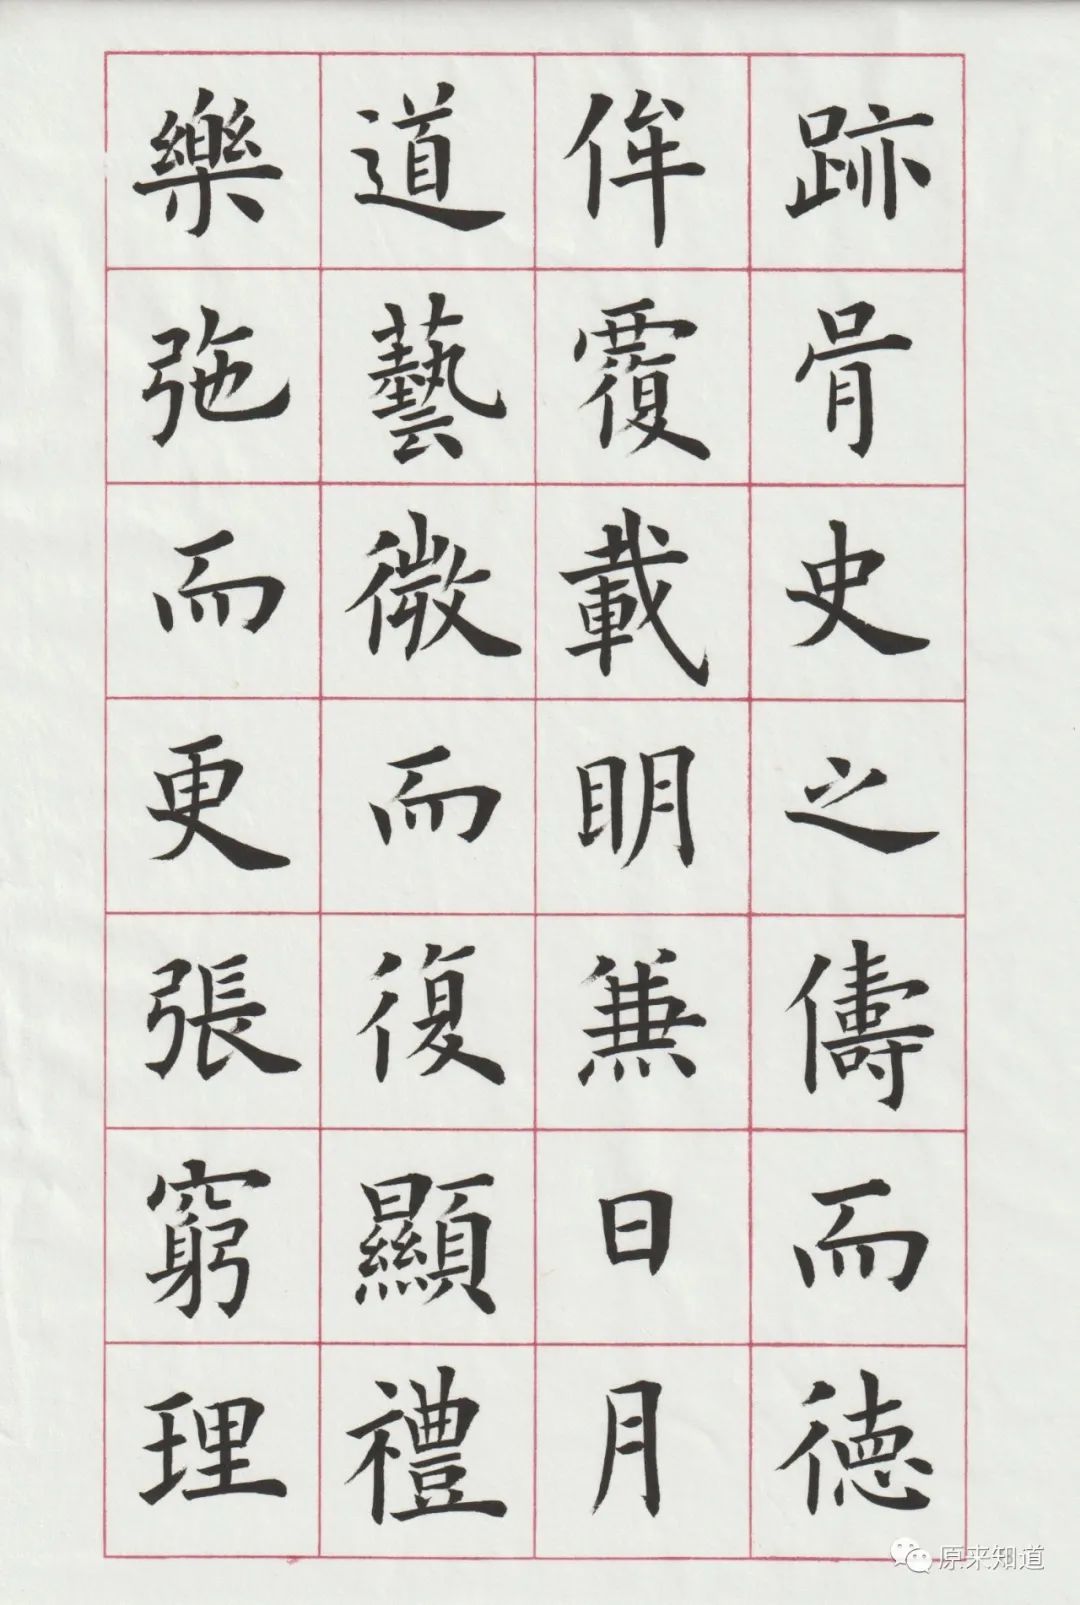 跡胥史之儔而德
侔覆載明兼日月
道藝微而復顯禮
樂弛而更張窮理
原来知道